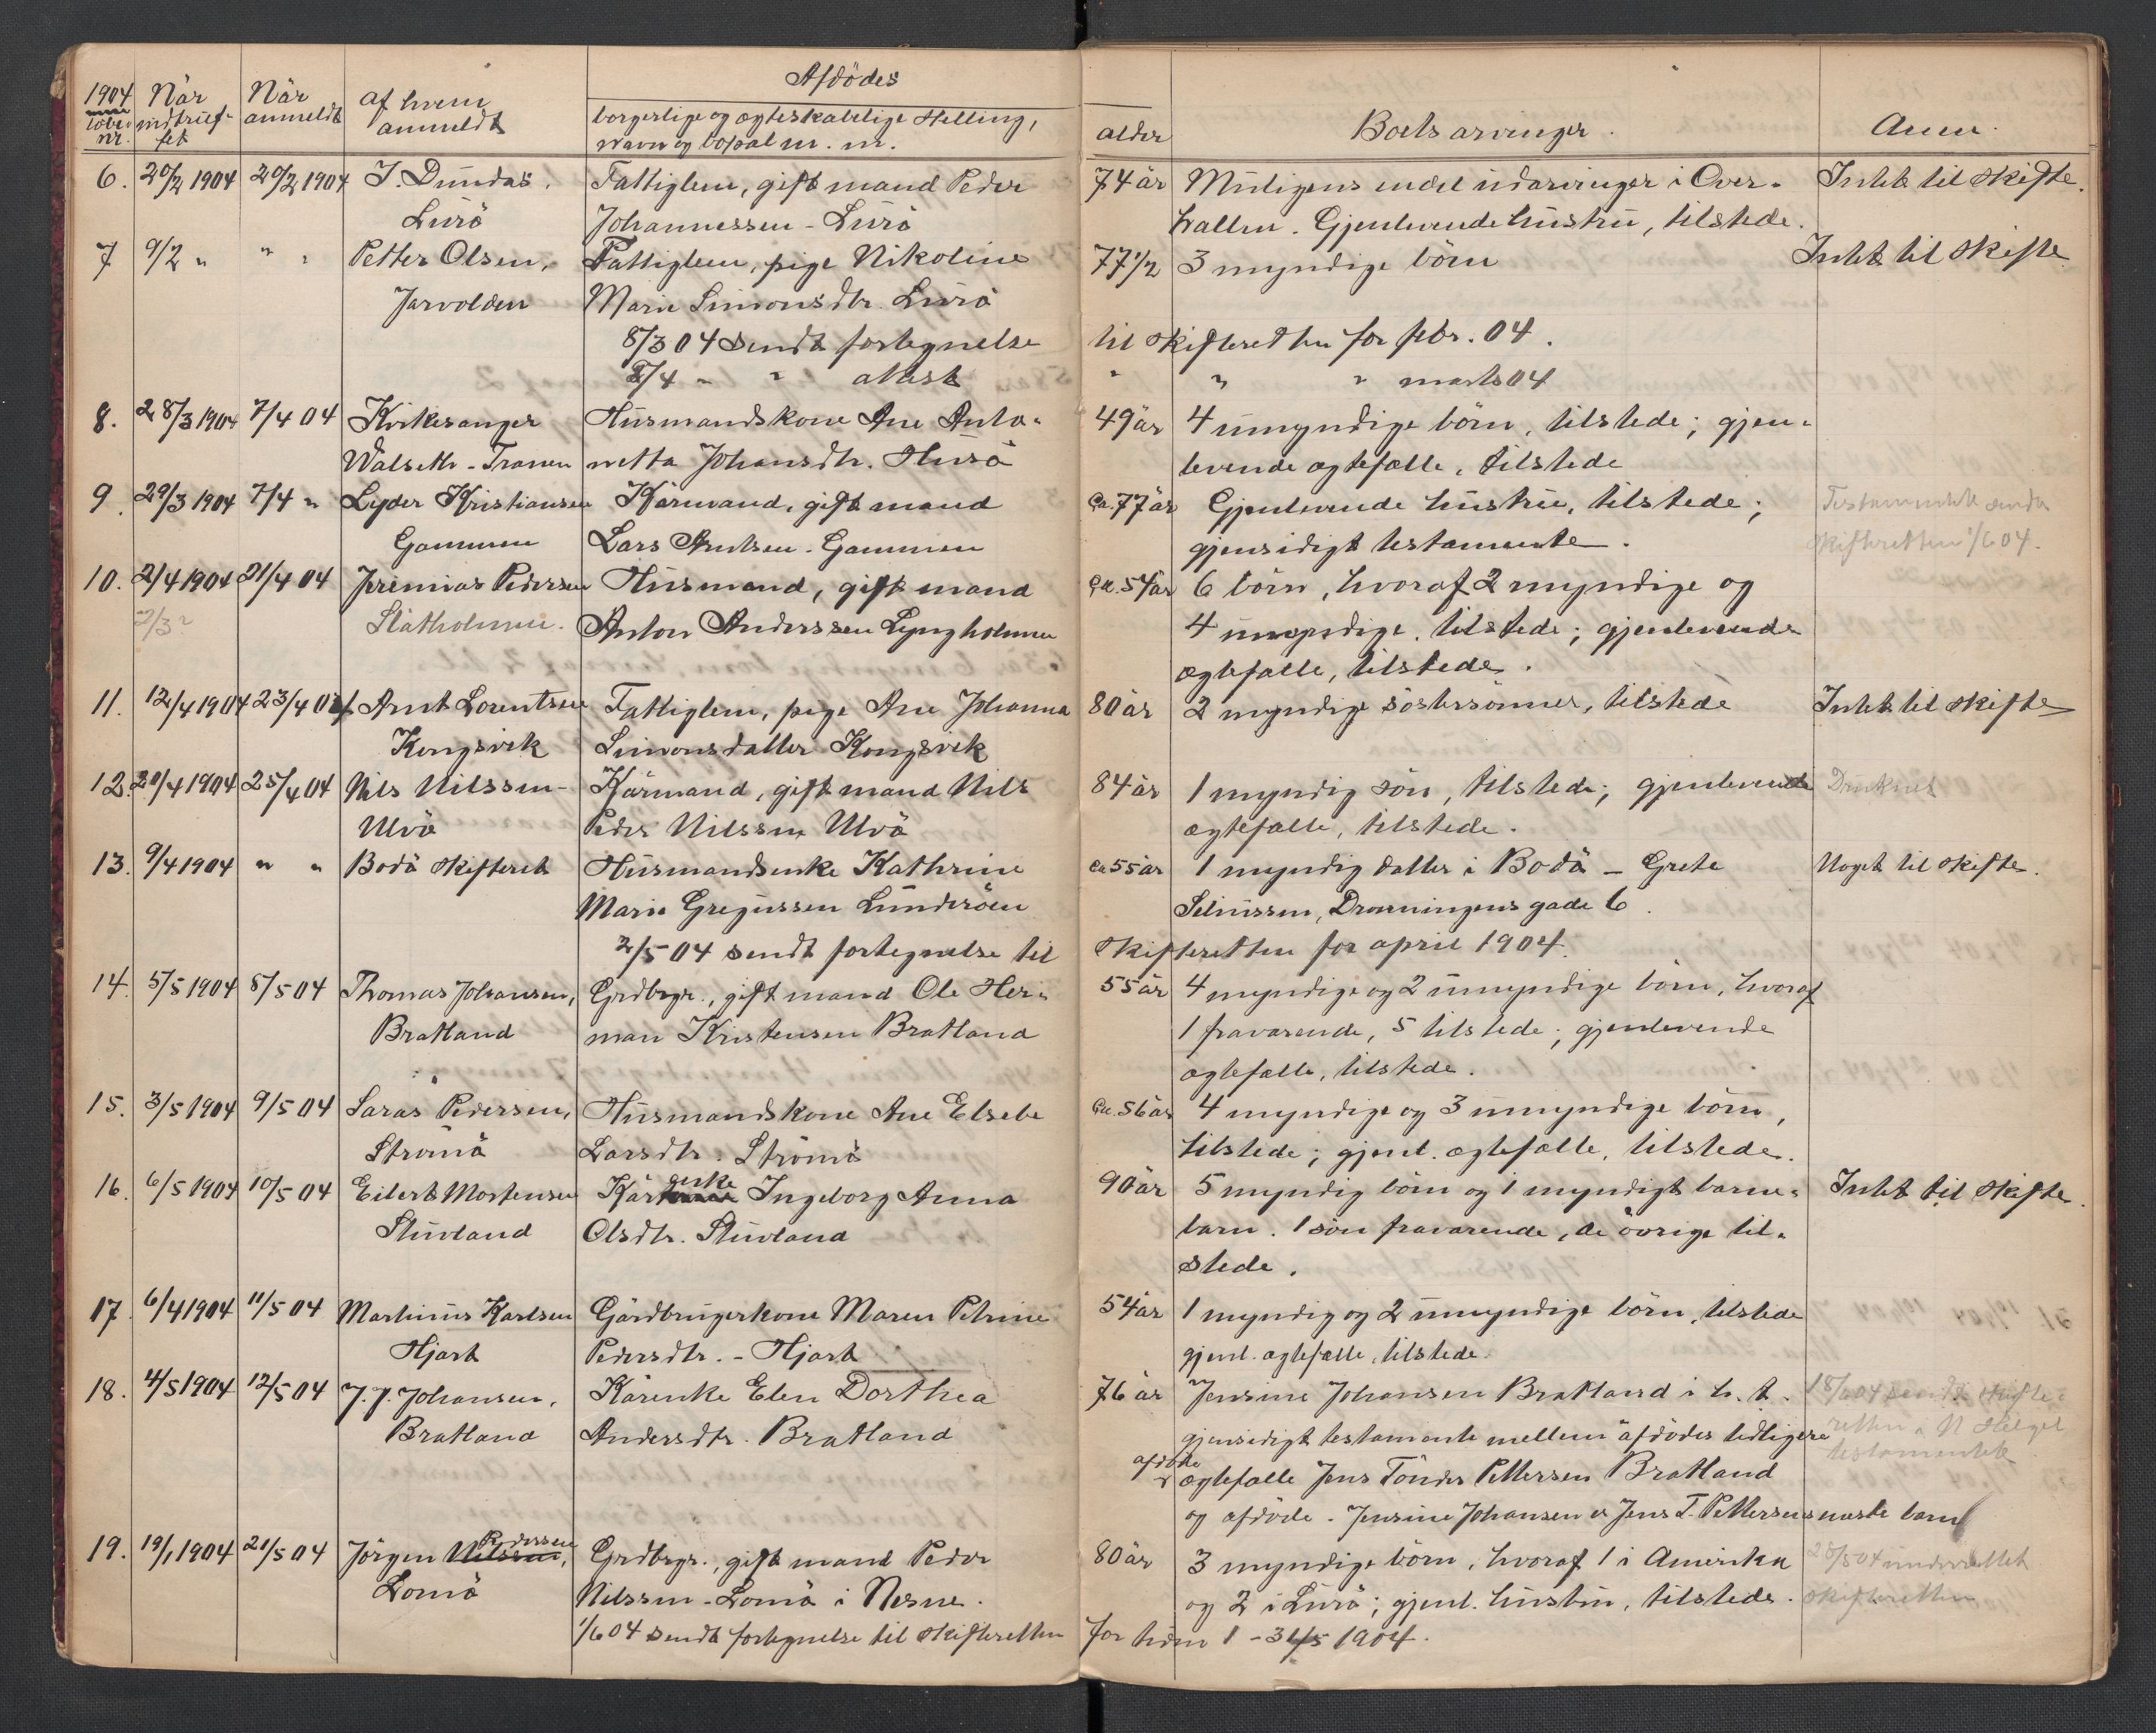 1904 Når Når af hvem Afdödes
löbe- indtruf- anmeldt anmeldt borgerlige og ægteskabelige Stilling, alder Boets arvinger. Anm.
nr. fet navn og bopæl m. m.
6. 20/2 1904 20/2 1904 I. Dundas, Fattiglem, gift mand Peder 74 år Muligens endel udarvinger i Over- Intet til skifte.
Lurö Johannessen - Lurö hallen. Gjenlevende hustru, tilstede.
7 9/2 " " " Petter Olsen, Fattiglem, pige Nikoline 77 1/2 3 myndige börn Intet til skifte
Jarvolden Marie Simonsdtr. Lurö
8/3 04 sendt fortegnelse til skifteretten for febr. 04.
8/4 " " attest " " " marts 04
8. 28/3 1904 7/4 04 Kirkesanger Husmandskone Ane Anto- 49 år 4 umyndige börn, tilstede; gjen-
Walseth - Tranen netta Johansdtr. Husö levende ægtefælle, tilstede
9. 29/3 1904 7/4 " Lyder Kristiansen Kårmand, gift mand ca. 77 år Gjenlevende hustru, tilstede; Testamentet sendt
Gammen Lars Arntsen - Gammen gjensidigt testamente. skifteretten 1/6 04.
10. 2/4 1904 21/4 04 Jeremias Pedersen Husmand, gift mand ca. 54 år 6 börn, hvoraf 2 myndige og
2/3 " Slåtholmen. Anton Anderssen Lyngholmen 4 umyndige, tilstede; gjenlevende
ægtefælle, tilstede.
11. 12/4 1904 23/4 04 Arnt Lorentsen Fattiglem, pige Ane Johanna 80 år 2 myndige söstersönner, tilstede Intet til skifte
Kongsvik Simonsdatter Kongsvik
12. 20/4 1904 25/4 04 Nils Nilssen - Kårmand, gift mand Nils 84 år 1 myndig sön, tilstede; gjenlevende Druknet
Ulvö Peder Nilssen Ulvö ægtefælle, tilstede.
13. 9/4 1904 " " Bodö skifteret Husmandsenke Kathrine ca 55 år 1 myndig datter i Bodö - Grete Noget til skifte.
Marie Gregussen Lunderöen Seliussen, Dronningens gade 6.
2/5 04 sendt fortegnelse til skifteretten for april 1904.
14. 5/5 1904 8/5 04 Thomas Johansen, Grdbrgr., gift mand Ole Her- 55 år 4 myndige og 2 umyndige börn, hvoraf
Bratland man Kristensen Bratland 1 fraværende, 5 tilstede; gjenlevende
ægtefælle, tilstede.
15. 3/5 1904 9/5 04 Saras Pedersen, Husmandskone Ane Elsebe ca. 56 år 4 myndige og 3 umyndige börn,
Strömö Larsdtr. Strömö tilstede; gjenl. ægtefælle, tilstede.
16. 6/5 1904 10/5 04 Eilert Mortensen Kår enke Ingeborg Anna 90 år 5 myndig börn og 1 myndigt barne- Intet til skifte.
Stuvland Olsdtr. Stuvland barn. 1 sön fraværende, de övrige til-
stede.
17 6/4 1904 11/5 04 Martinus Karlsen Gårdbrugerkone Maren Petrine 54 år 1 myndig og 2 umyndige börn, tilstede
Hjart Pedersdtr. - Hjart gjenl. ægtefælle, tilstede.
18. 4/5 1904 12/5 04 J. J. Johansen, Kårenke Elen Dorthea 76 år Jensine Johansen Bratland i h. t. 18/5 04 sendt skifte-
Bratland Andersdtr. Bratland gjensidigt testamente mellem afdödes tidligere retten i N. Helgel
afdöde ægtefælle Jens Tönder Pettersen Bratland testamentet
og afdöde - Jensine Johansen er Jens T. Pettersens næste barn
19. 19/1 1904 21/5 04 Jörgen Nilssen, Pedersen Grdbrgr., gift mand Peder 80 år 3 myndige börn, hvoraf 1 i Amerika 28/5 04 underrettet
Lomö Nilssen - Lomö i Nesne. og 2 i Lurö; gjenl. hustru, tilstede. skifteretten
1/6 04 sendt fortegnelse til skifteretten for tiden 1 - 31/5 1904.